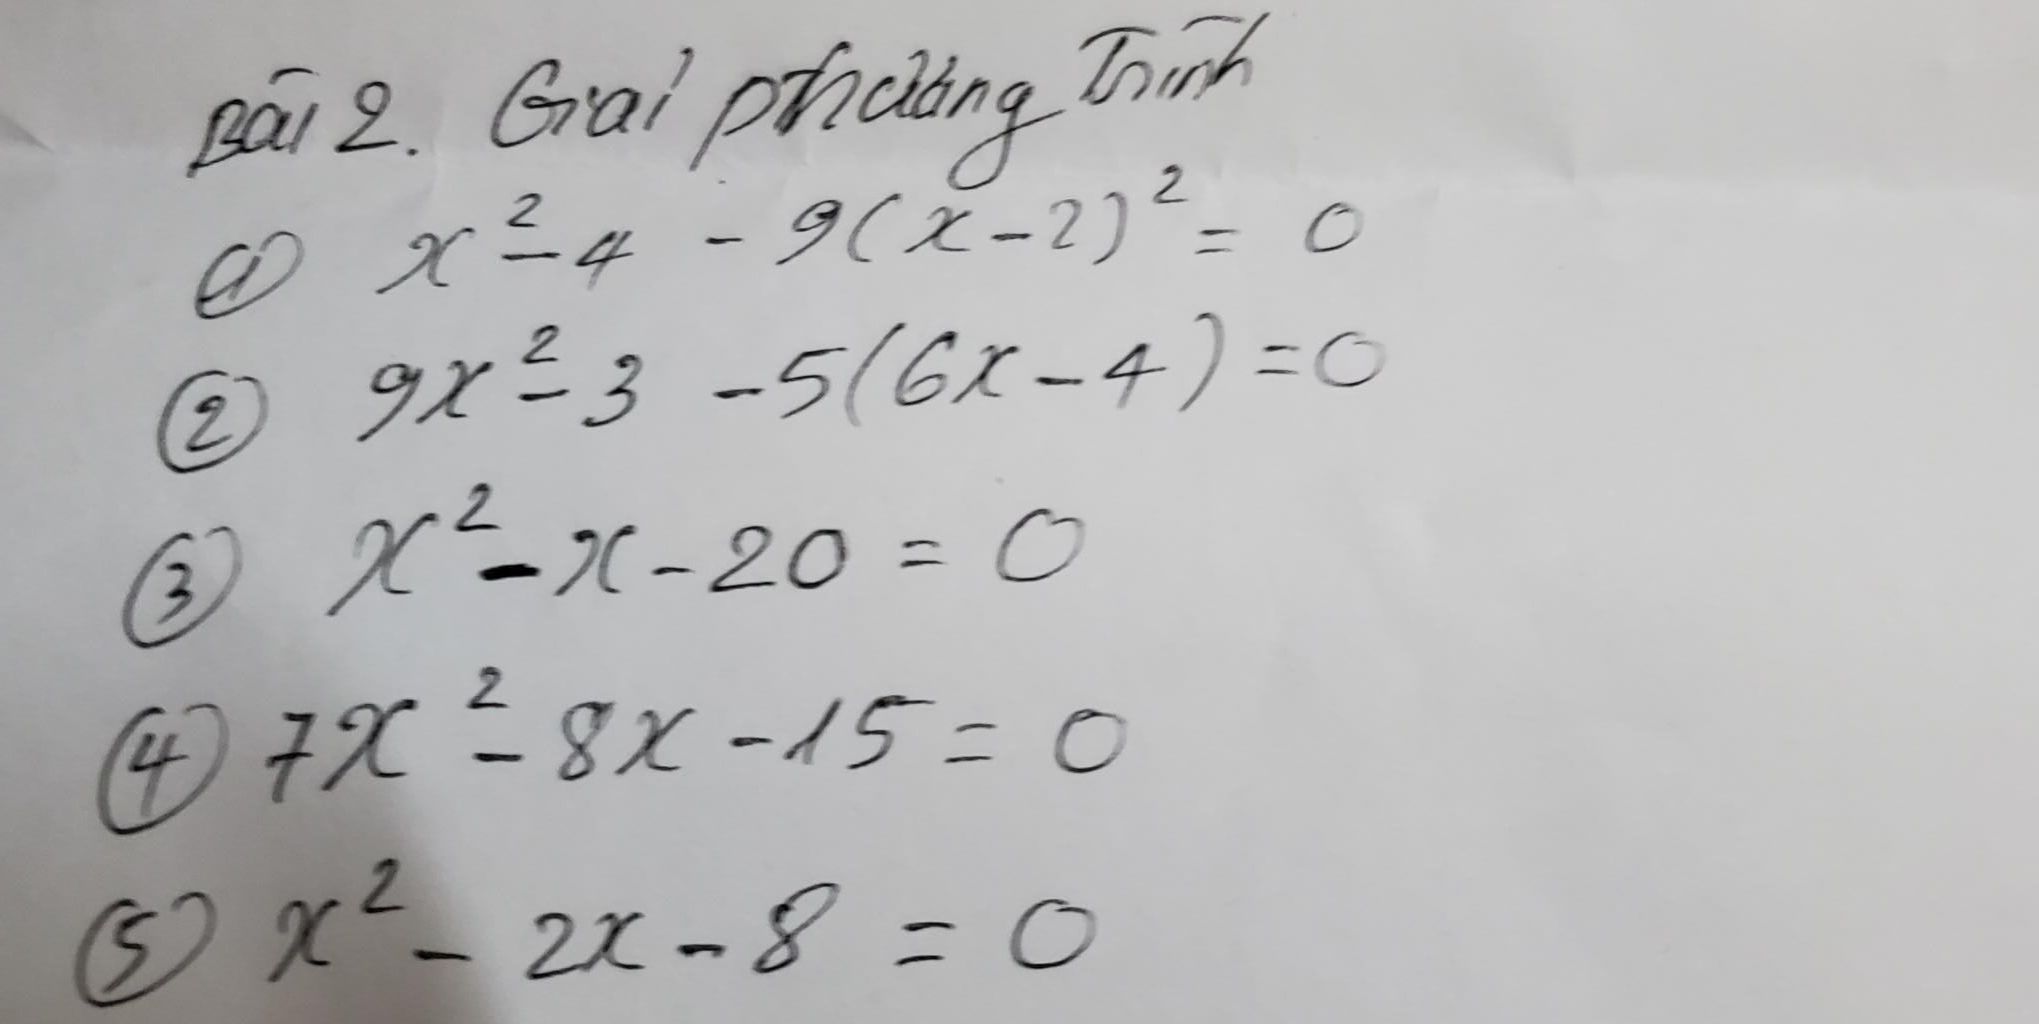 Bài 2. Giải phương Trình
① x² - 4 - 9(x - 2)² = 0
② 9x² - 3 - 5(6x - 4) = 0
③ x² - x - 20 = 0
④ 7x² - 8x - 15 = 0
⑤ x² - 2x - 8 = 0